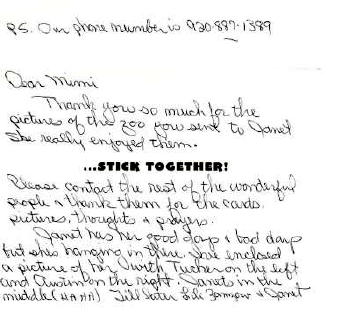 P.S. Our phone number is 920-887-1389
Dear Mimi
Thank you so much for the
pictures of the zoo you sent to Janet
She really enjoyed them.
...STICK TOGETHER!
Please contact the rest of the wonderful
people & thank them for the cards.
pictures, thoughts & prayers.
Janet has her good days & bad days
but she's hanging in there. She enclosed
a picture of her with Tucker on the left
and Austin on the right. Janets in the
middle (HA HA) Till later & Janet